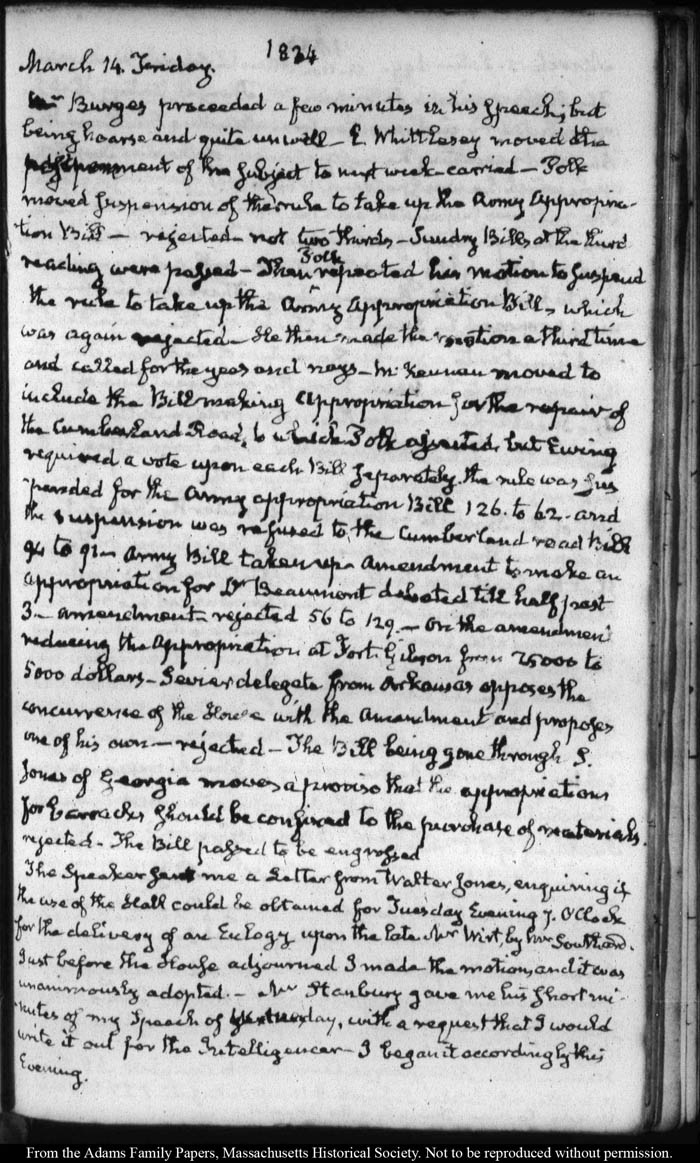 1834
March 14. Friday.
Mr Burges proceeded a few minutes in his Speech; but
being hoarse and quite unwell — E. Whittlesey moved the
postponement of the subject to next week - carried — Polk
moved suspension of the rule to take up the Army Appropria-
tion Bill — rejected - not two thirds — Sundry Bills at the third
reading were passed — Then Polk repeated his motion to suspend
the rule to take up the Army Appropriation Bill, which
was again rejected — He then made the motion a third time
and called for the yeas and nays — McKennan moved to
include the Bill making appropriation for the repair of
the Cumberland Road, to which Polk assented, but Ewing
required a vote upon each Bill separately. the rule was sus
pended for the Army appropriation Bill 126. to 62 - and
the suspension was refused to the Cumberland road Bill
94 to 91 — Army Bill taken up - Amendment to make an
appropriation for Dr Beaumont debated till half past
3 — amendment rejected 56 to 129. — On the amendment
reducing the Appropriation at Fort Gibson from 25000 to
5000 dollars — Sevier delegate from Arkansas opposes the
concurrence of the House with the Amendment and proposes
one of his own — rejected — The Bill being gone through S.
Jones of Georgia moves a proviso that the appropriations
for barracks should be confined to the purchase of materials.
rejected - The Bill passed to be engrossed
The Speaker sent me a Letter from Walter Jones, enquiring if
the use of the Hall could be obtained for Tuesday Evening 7. O'Clock
for the delivery of an Eulogy upon the late Mr Wirt, by Mr Southard.
Just before the House adjourned I made the motion, and it was
unanimously adopted. — Mr Stanbury gave me his short mi-
nutes of my Speech of yesterday, with a request that I would
write it out for the Intelligencer — I began it accordingly this
Evening.
From the Adams Family Papers, Massachusetts Historical Society. Not to be reproduced without permission.